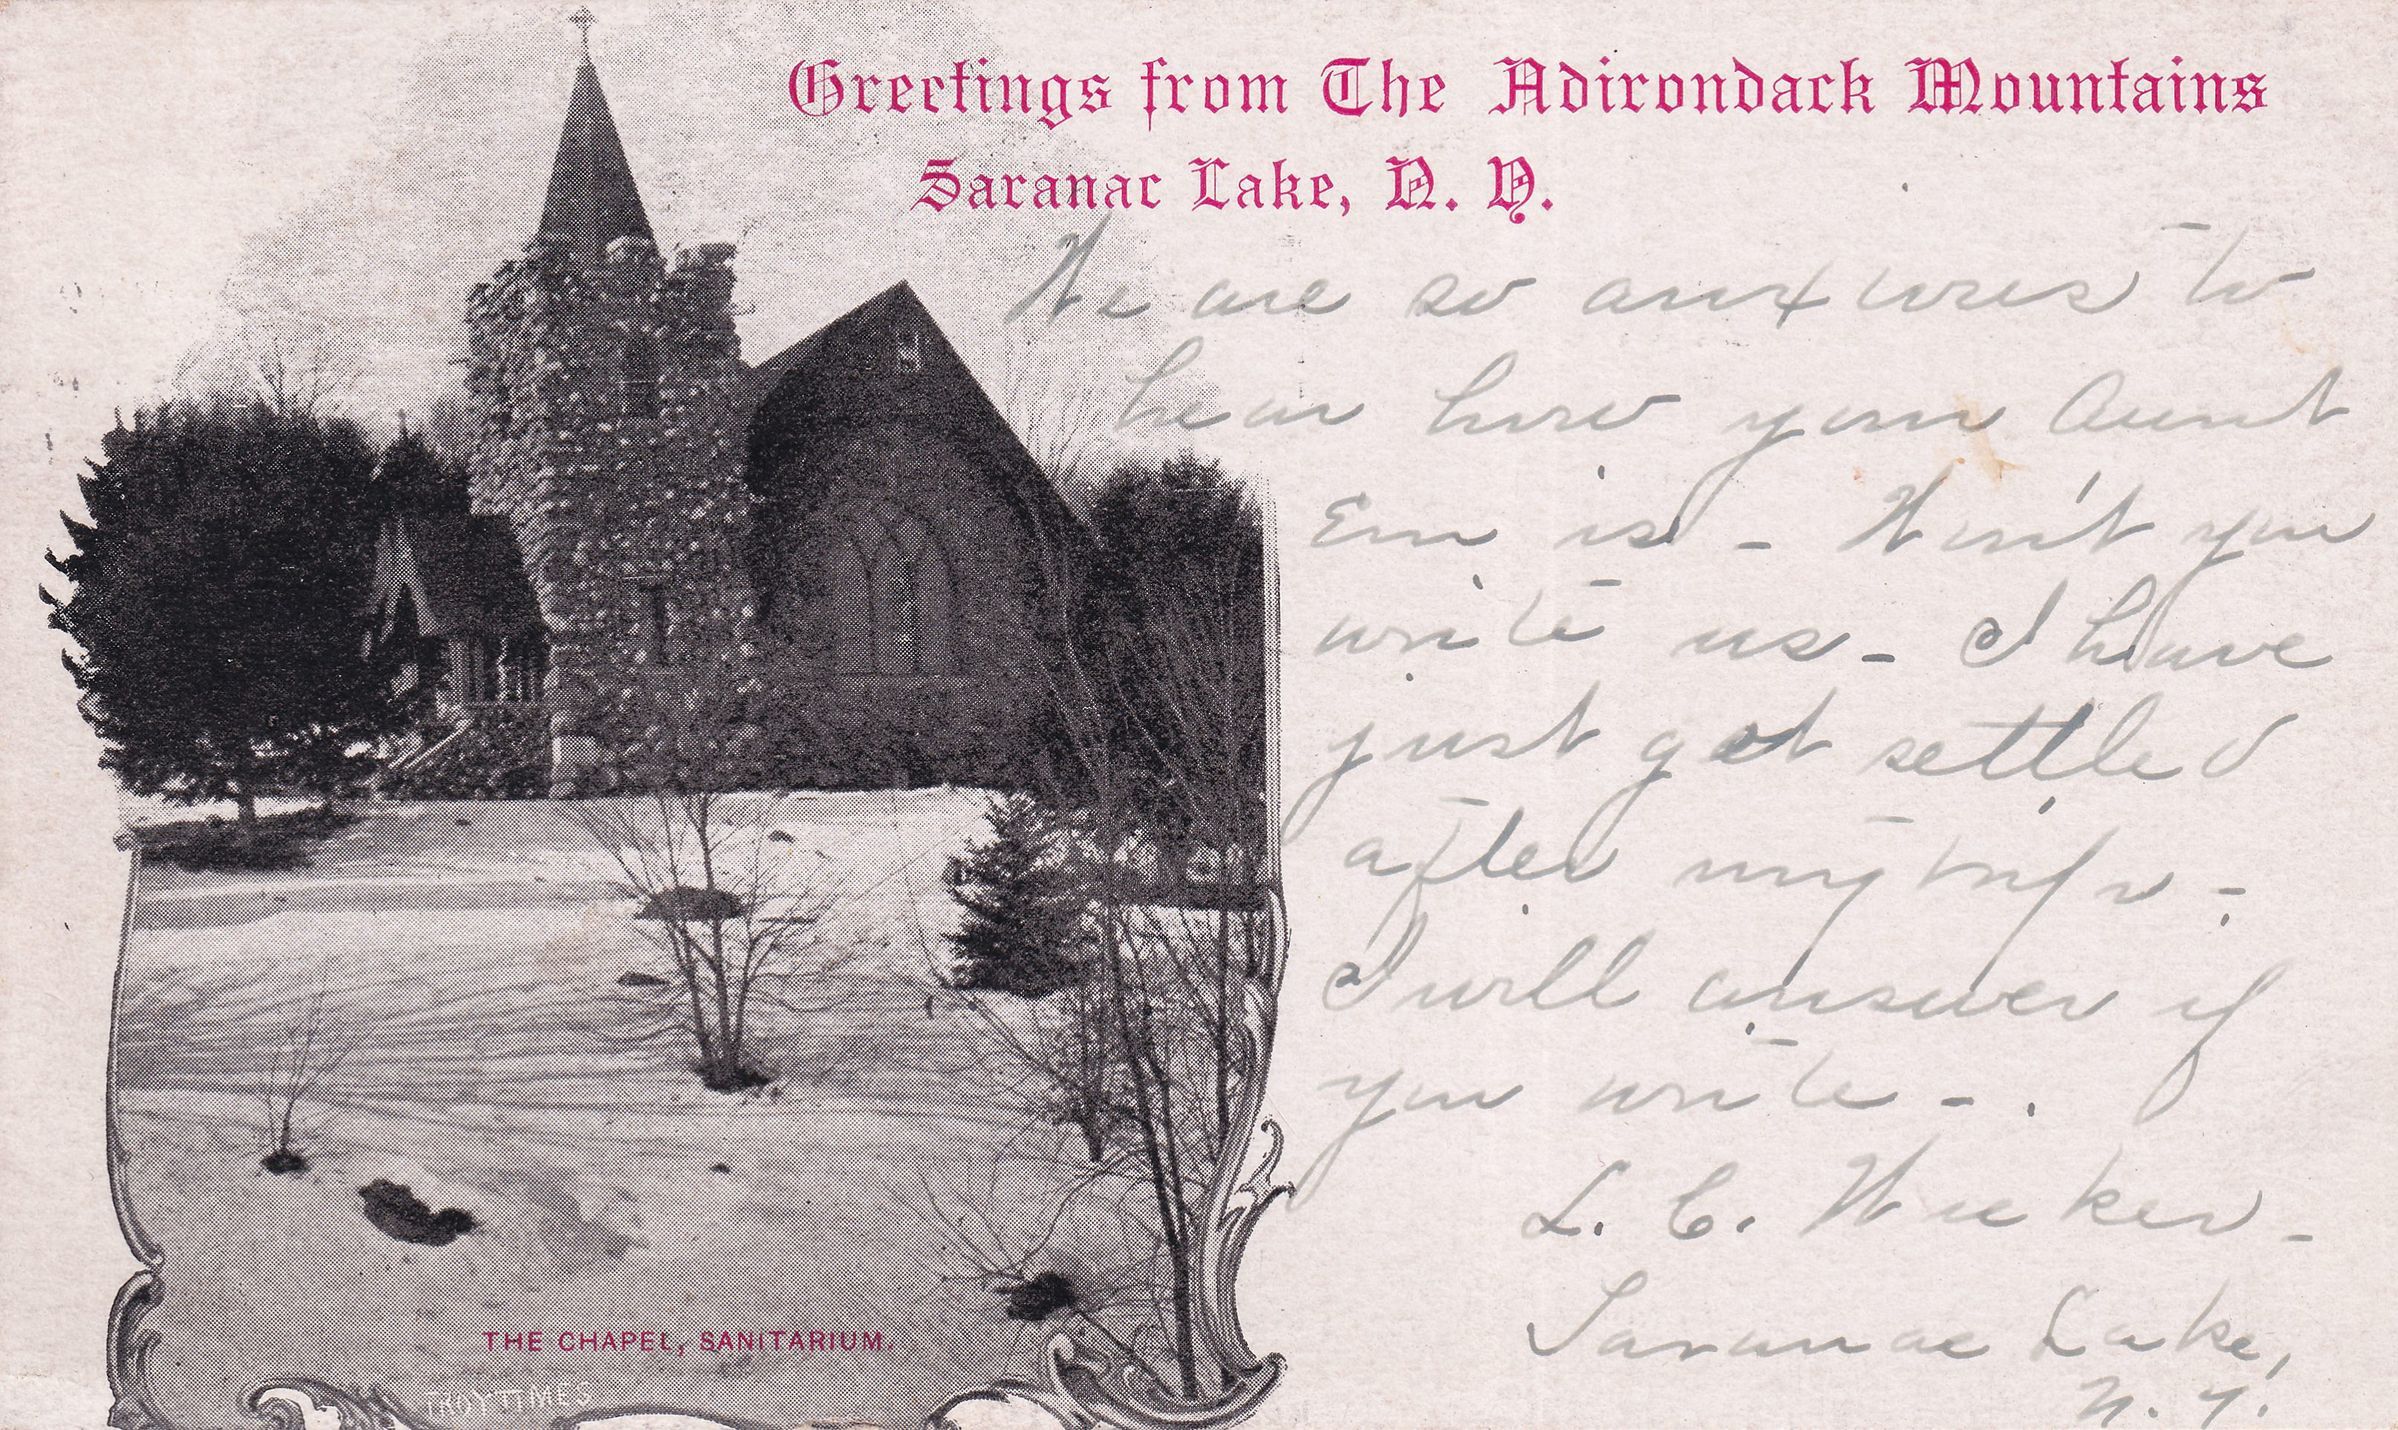 Greetings from The Adirondack Mountains
Saranac Lake, N. Y.
We are so anxious to
hear how your Aunt
Em is - Won't you
write us - I have
just got settled
after my trip -
I will answer if
you write - .
L. C.
Saranac Lake,
N. Y.
THE CHAPEL, SANITARIUM.
TROY TIMES